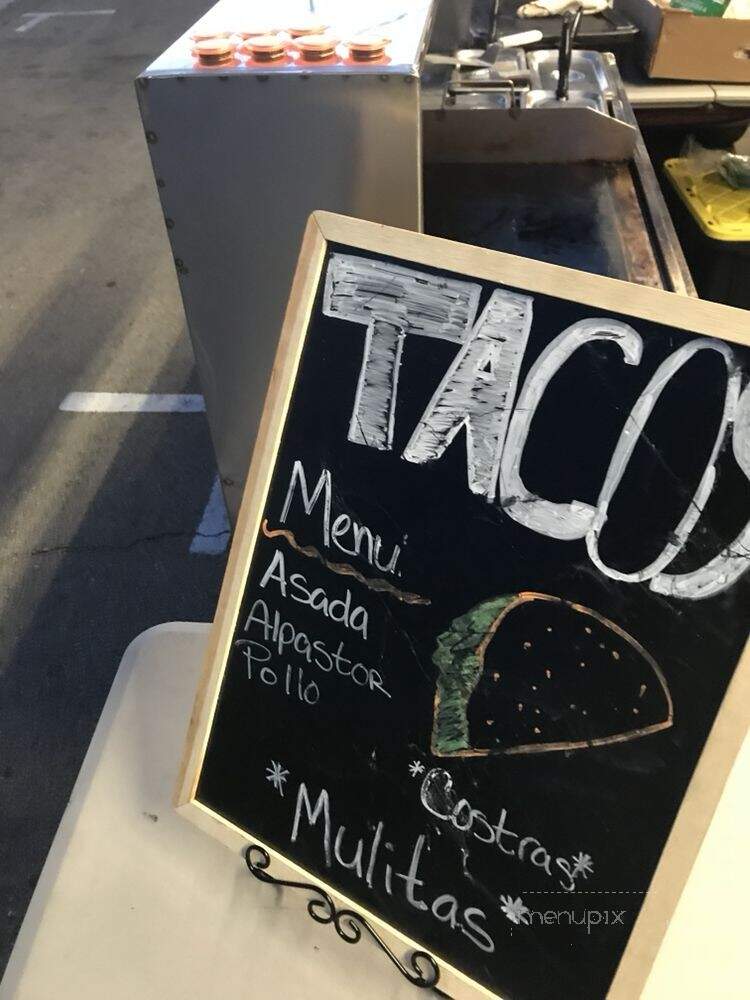 TACOS
Menu.
Asada
Alpastor
Pollo
*Costras*
*Mulitas*
menupix